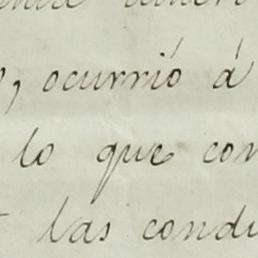 , ocurrió á
lo que con
las condu